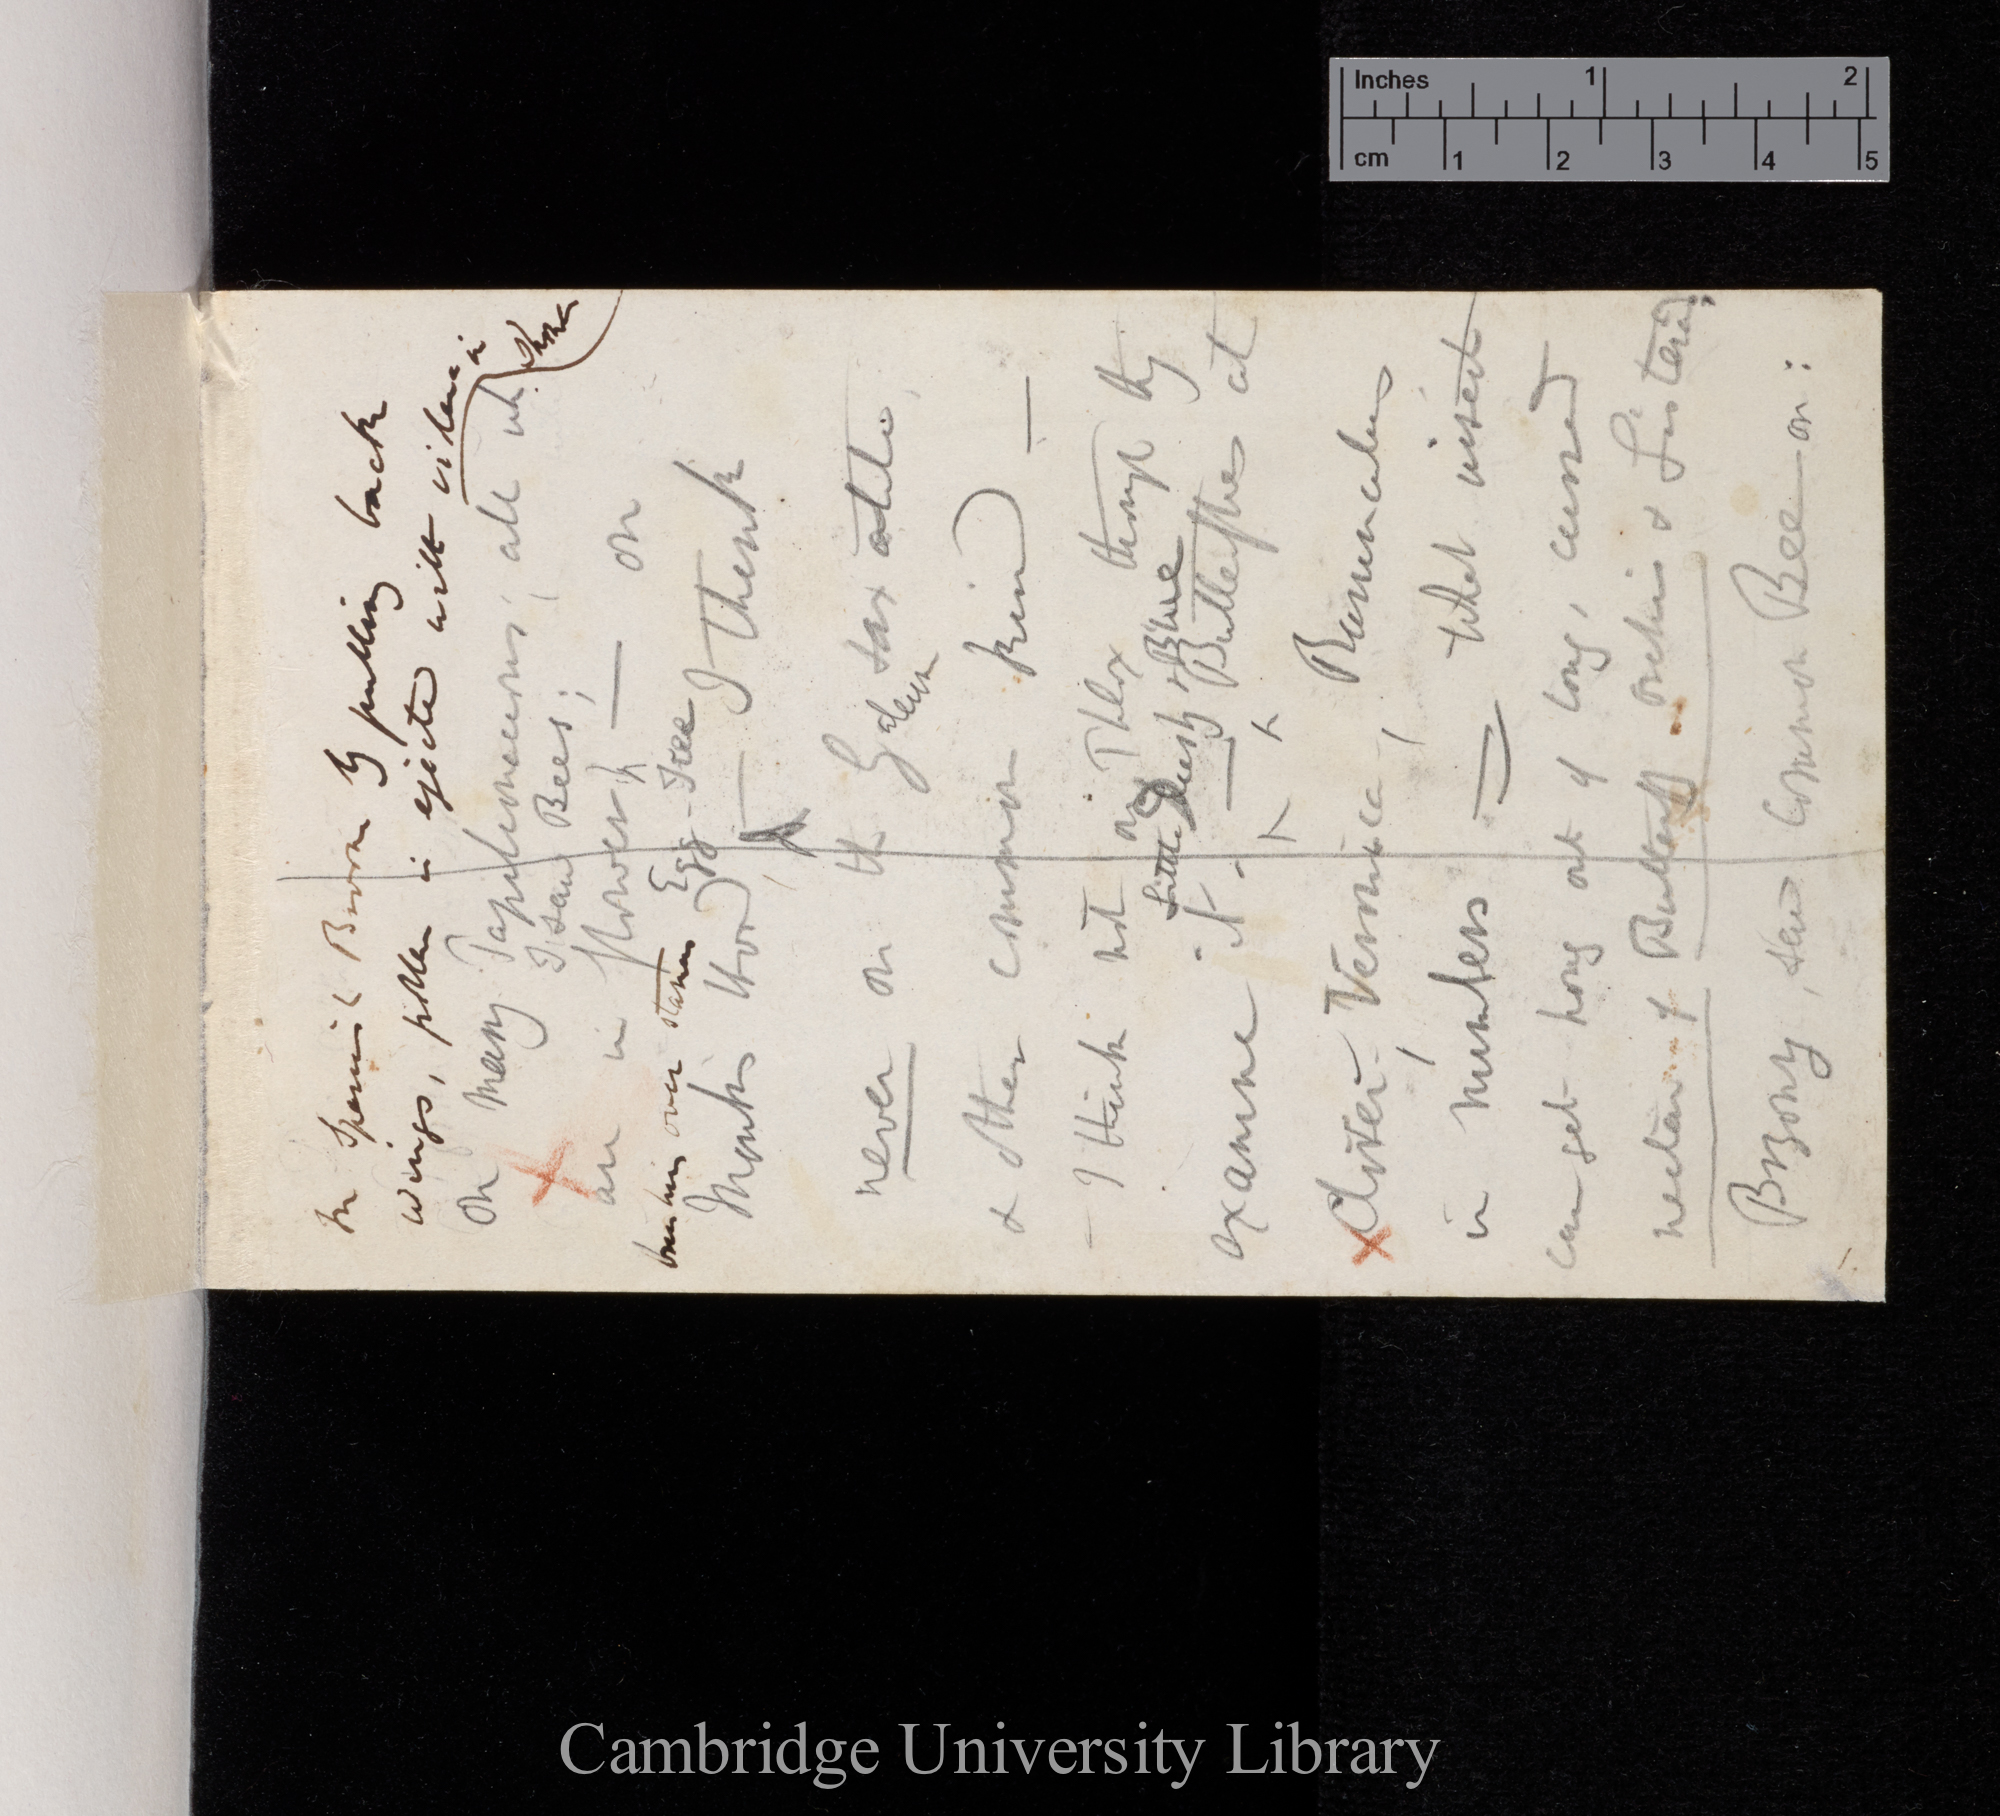 In Spanish Broom by pulling back
wings, pollen is ejected with violence &
brushes over stamen
on many Papilionaceous; all wh.
I saw Bees;
are in flower — on
Egg-Tree
Monks Hood — I think
never on the Garden
Saxatile
& other common kind —
— I think not on Phlox though they
Little Dusky & Blue
examine it. — Butterflies at
Clover, Veronica, Ranunculus
in numbers = What insect
can get honey out of long, curved
nectary of Butterfly orchis & Listera;
Bryony, saw common Bee on:
Inches 1 2
cm 1 2 3 4 5
Cambridge University Library